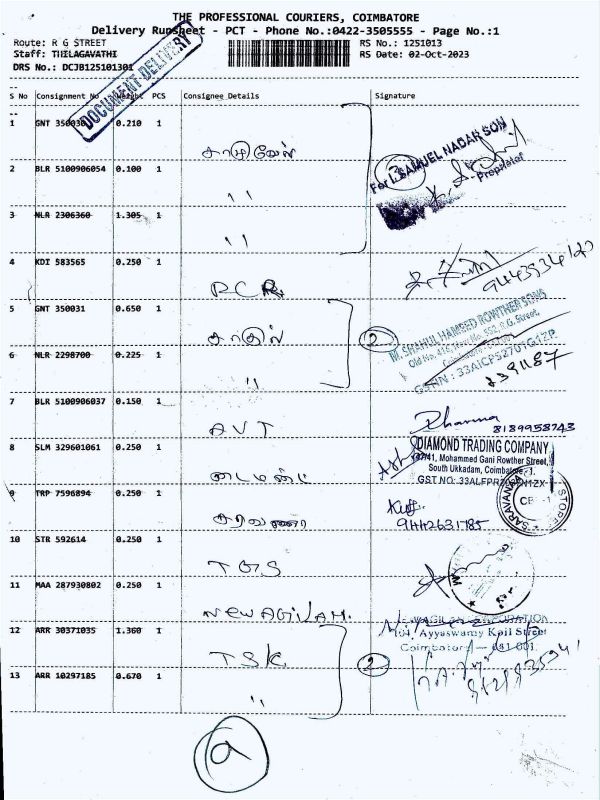 THE PROFESSIONAL COURIERS, COIMBATORE
Delivery Runsheet - PCT - Phone No.:0422-3505555 - Page No.:1
Route: R G STREET
RS No.: 1251013
Staff: THILAGAVATHI
RS Date: 02-Oct-2023
DRS No.: DCJB125101301
DOCUMENT DELIVERY
S No Consignment No Weight PCS Consignee Details Signature
1 GNT 350030 0.210 1
சாமுவேல்
For I. SAMUEL NADAR SON
Proprietor
3
2 BLR 5100906054 0.100 1
"
3 NLR 2306360 1.305 1
"
4 KDI 583565 0.250 1
PCR
5 GNT 350031 0.650 1
2
M. SHAHUL HAMEED ROWTHER SONS
R.G. Street,
Coimbatore
GSTIN : 33AICPS2701G1ZP
6 NLR 2298700 0.225 1
"
2391187
7 BLR 5100906037 0.150 1
AVT
Dharma
8139958743
8 SLM 329601061 0.250 1
டைமண்ட்
DIAMOND TRADING COMPANY
Mohammed Gani Rowther Street,
South Ukkadam, Coimbatore-1.
9 TRP 7596894 0.250 1
சரவணா
9442631785
10 STR 592614 0.250 1
TGS
11 MAA 287930802 0.250 1
NEW AGILAM.
12 ARR 30371035 1.360 1
TSK
NEW AGIL CORPORATION
Ayyaswamy Koil Street
Coimbatore - 641 001.
2
13 ARR 10297185 0.670 1
"
a